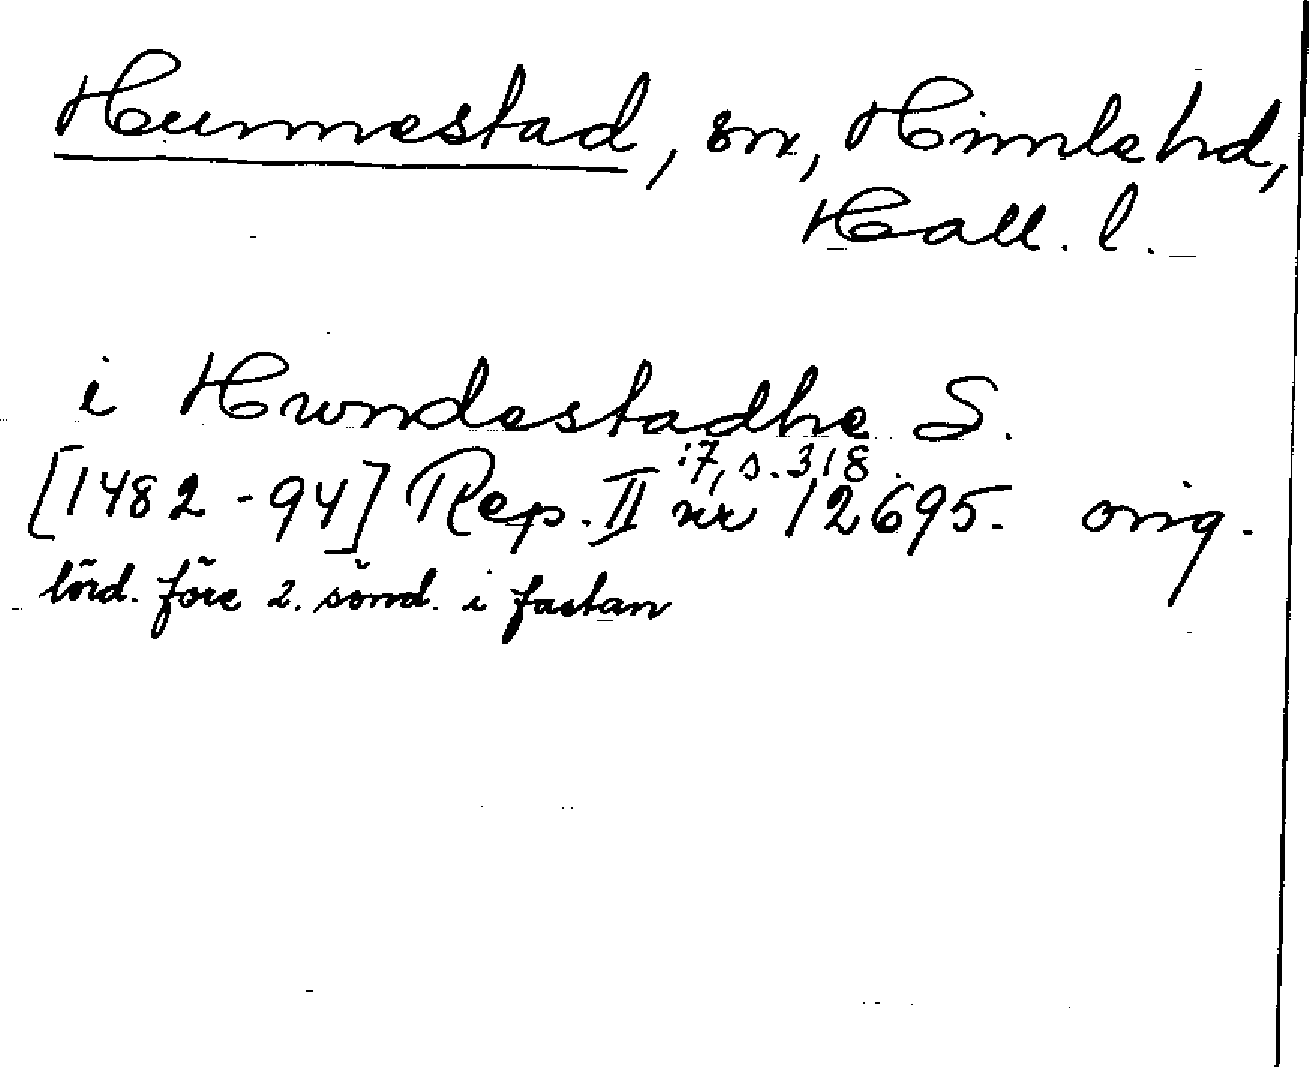 Hunnestad, sn, Himle hd,
Hall. l.
i Hundestadhe S.
:7, s. 318
[1482-94] Rep. II nr 12695. orig.
lörd. före 2. sönd. i fastan